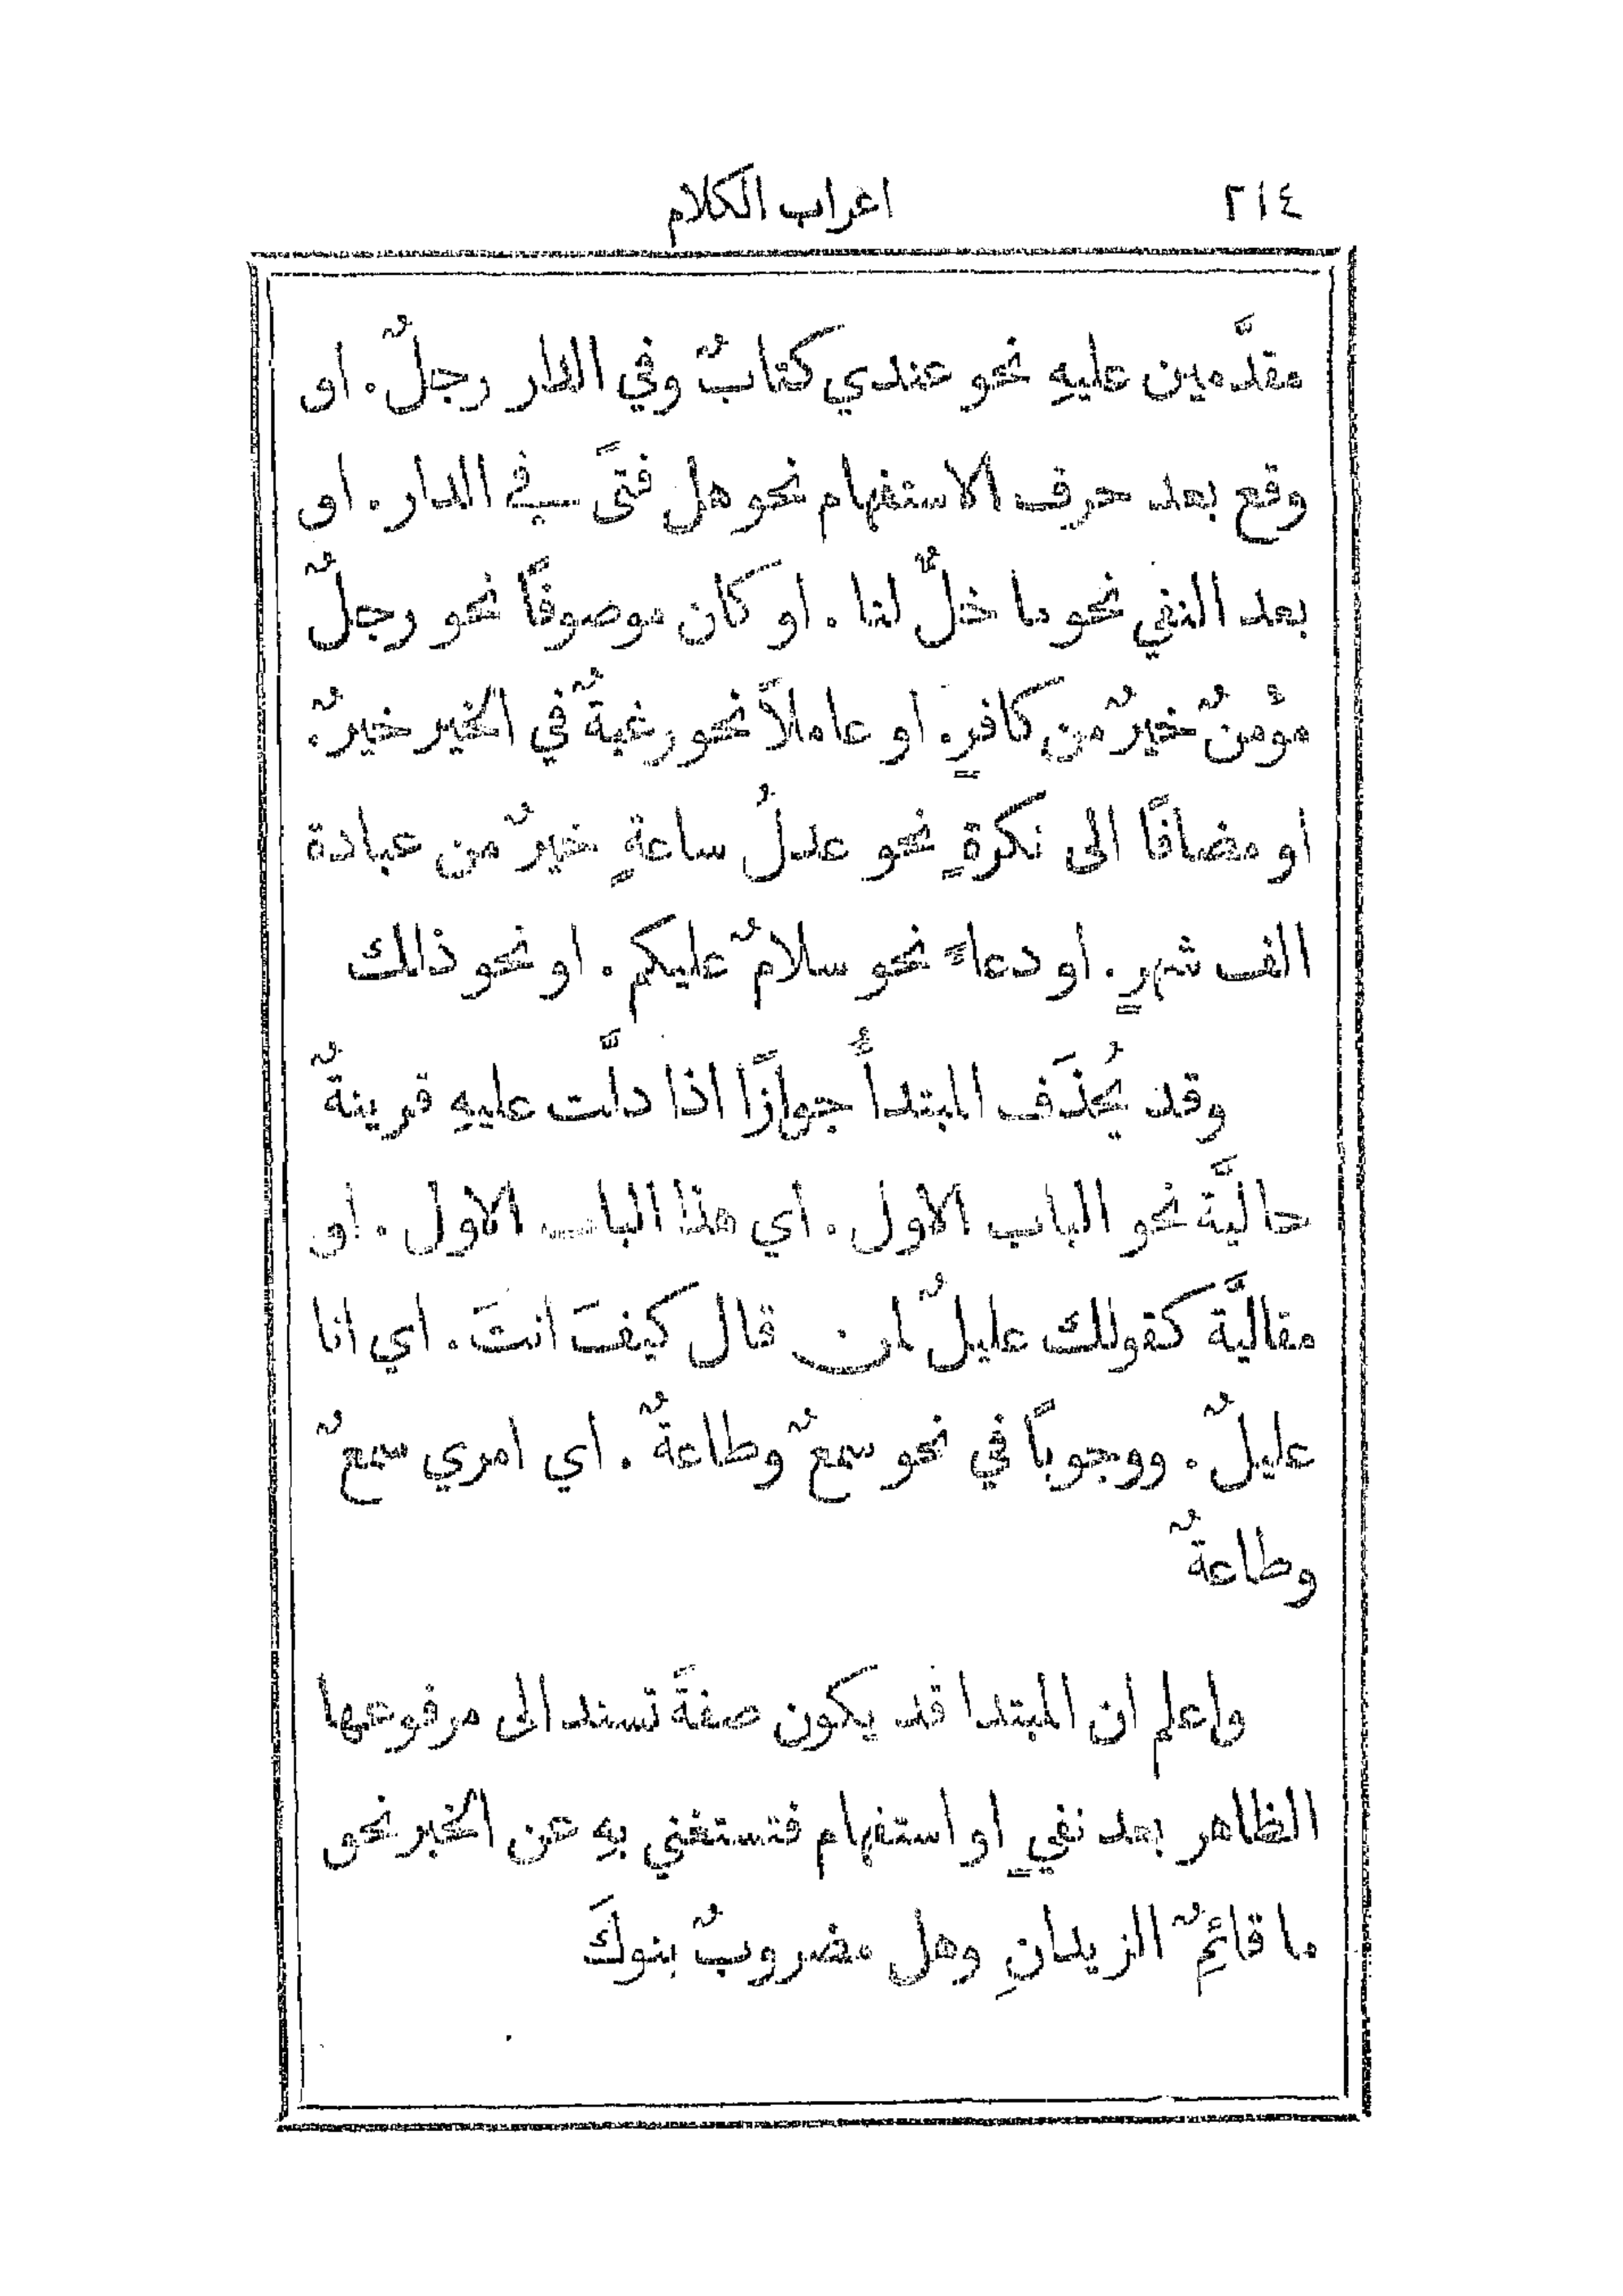 ٢١٤
اعراب الكلام
مقدَّمين عليهِ نحو عندي كتابٌ وفي الدار رجلٌ. او
وقع بعد حرف الاستفهام نحو هل فتًى في الدار. او
بعد النفي نحو ما خلٌّ لنا. او كان موصوفًا نحو رجلٌ
مؤمنٌ خيرٌ من كافرٍ. او عاملاً نحو رغبةٌ في الخير خيرٌ.
او مضافًا الى نكرةٍ نحو عدلُ ساعةٍ خيرٌ من عبادة
الف شهرٍ. او دعاءً نحو سلامٌ عليكم. او نحو ذلك
وقد يُحذَف المبتدأُ جوازًا اذا دلَّت عليهِ قرينةٌ
حاليَّة نحو الباب الاول. اي هذا الباب الاول. او
مقاليَّة كقولك عليلٌ لمن قال كيفَ انتَ. اي انا
عليلٌ. ووجوبًا في نحو سمعٌ وطاعةٌ. اي امري سمعٌ
وطاعةٌ
واعلم ان المبتدا قد يكون صفةً تسند الى مرفوعها
الظاهر بعد نفيٍ او استفهام فتستغني بهِ عن الخبر نحو
ما قائمٌ الزيدانِ وهل مضروبٌ بنوكَ